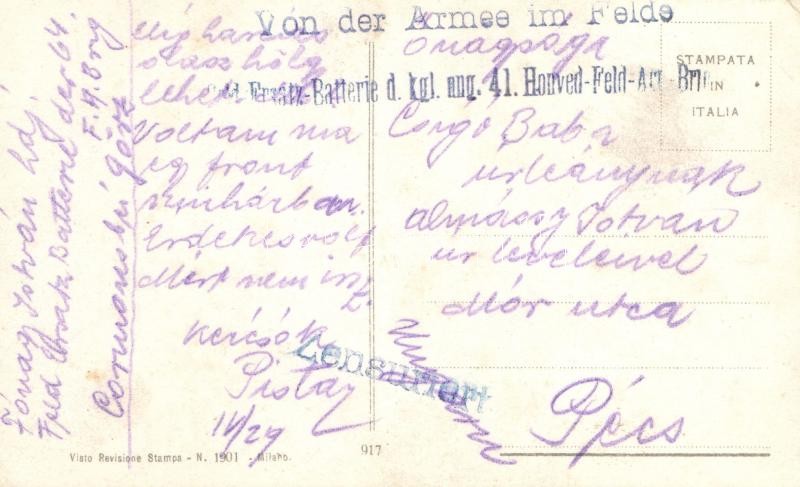 Von der Armee im Felde
Feld-Ersatz-Batterie d. kgl. ung. 41. Honved-Feld-Art-Brig
STAMPATA
IN
ITALIA
Tónay István hdj.
Feld Ersatz Batterie der 64.
F.A.Brig
Cormons bei Görz
olasz hölg
Voltam ma
eg front
szinházban.
Erdekes volt
Mért nem irsz
kezcsók
Pistay
IV/29
Zensuriert
Önagysága
Csrgő Baba
urleánynak
Almássy István
ur leveleivel
Mór utca
Pécs
Visto Revisione Stampa - N. 1901 - Milano.
917